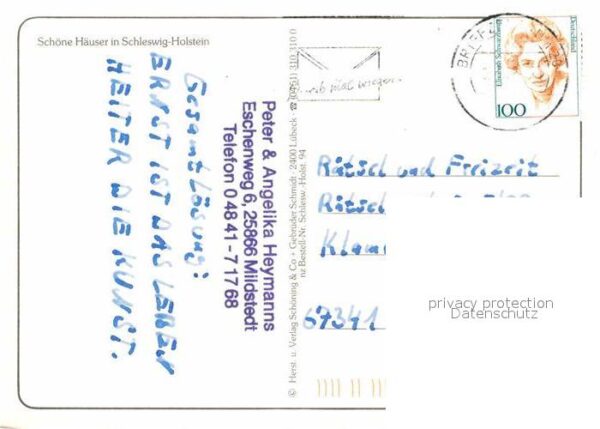 Schöne Häuser in Schleswig-Holstein
Gesamtlösung:
ERNST IST DAS LEBEN
HEITER DIE KUNST.
Peter & Angelika Heymanns
Eschenweg 6, 25866 Mildstedt
Telefon 0 48 41 - 7 17 68
© Herst. u. Verlag Schöning & Co • Gebrüder Schmidt • 2400 Lübeck • ☎ (0451) 310 310 0
nz Bestell-Nr. Schlesw.-Holst. 94
mal wieder
Deutschland
Elisabeth Schwarzhaupt
100
Rätsel und Freizeit
Rätsel
67341
privacy protection
Datenschutz